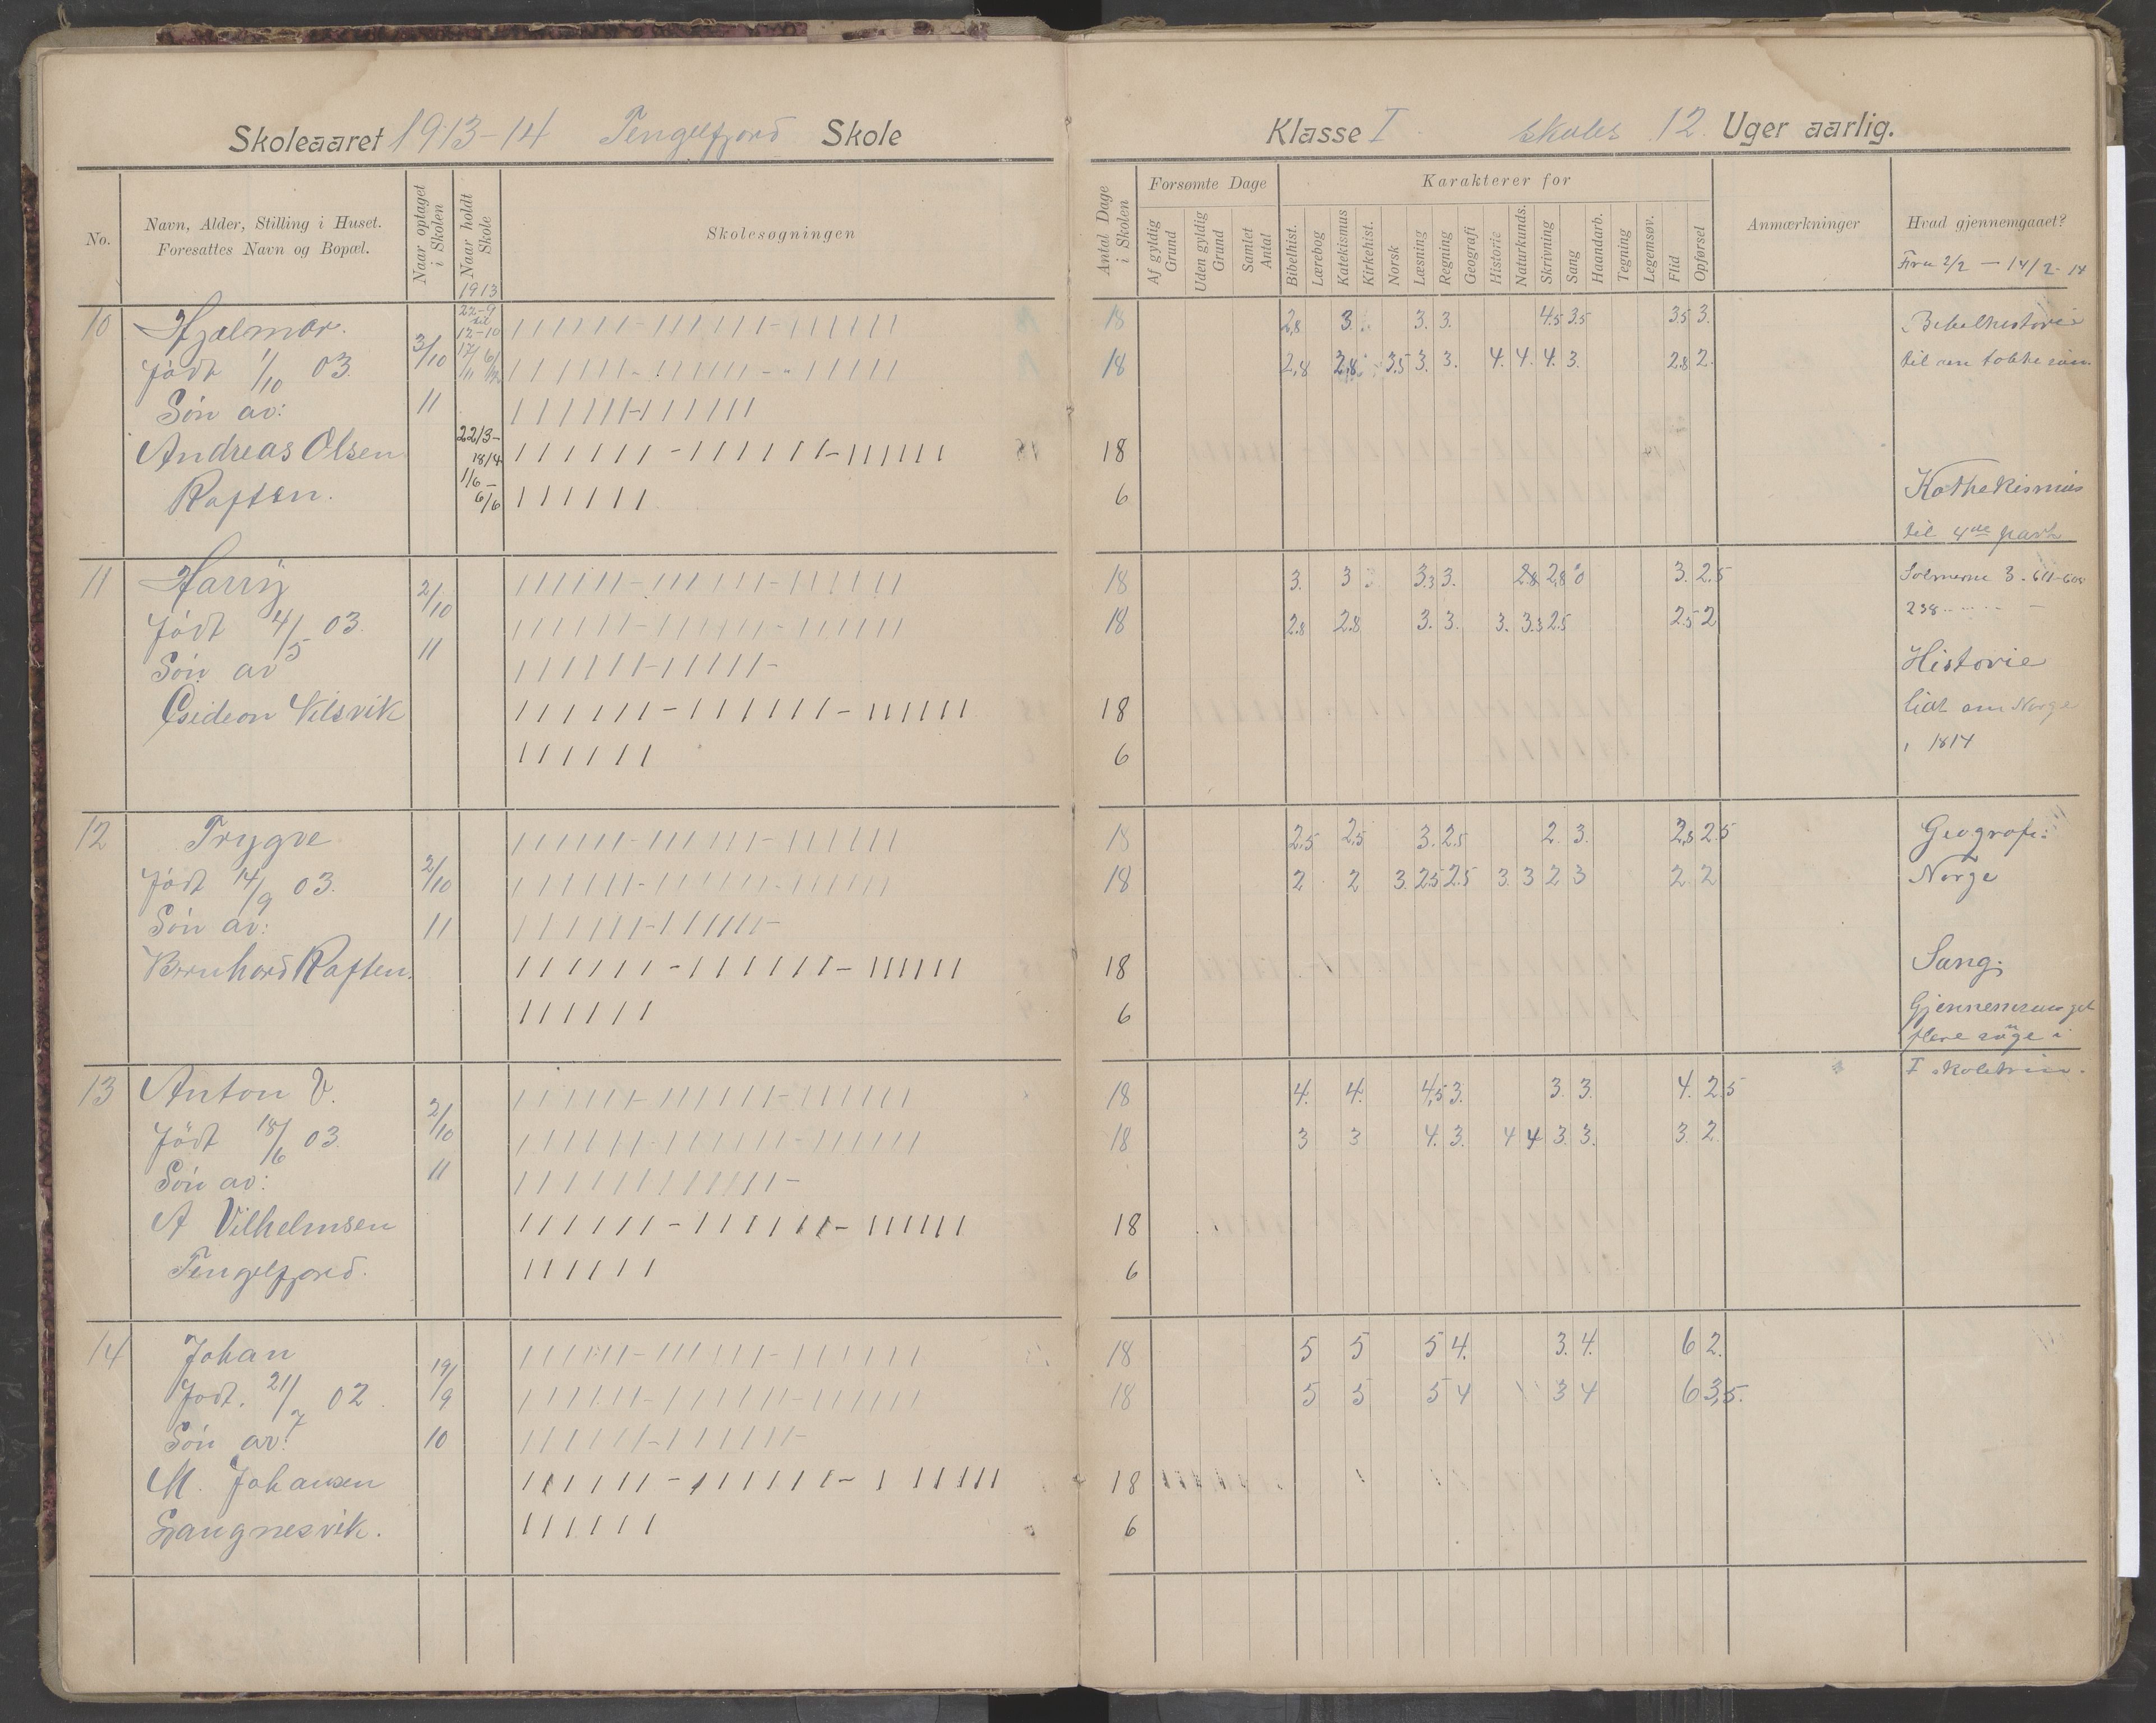 Skoleaaret 1913-14 Tengelfjord Skole
No.
Navn, Alder, Stilling i Huset.
Foresattes Navn og Bopæl.
Naar optaget i Skolen
Naar holdt Skole
1913
Skolesøgningen
10 Hjalmar.
Født 1/10 03
Søn av:
Andreas Olsen
Raften.
3/10
11
22-9
til
12-10
17/11 6/12
22/3-
18/4
1/6-
6/6
11 Harry
Født 4/5 03.
Søn av
Gideon Vilsvik
2/10
11
12 Trygve
Født 14/9 03.
Søn av:
Bernhard Raften.
2/10
11
13 Anton V.
Født 18/6 03
Søn av:
A Vilhelmsen
Tengelfjord.
2/10
11
14 Johan
Født. 21/7 02.
Søn av:
M. Johansen
Spangnesvik.
19/9
10
Klasse I skoles 12 Uger aarlig.
Antal Dage i Skolen
Forsømte Dage
Af gyldig Grund
Uden gyldig Grund
Samlet Antal
Karakterer for
Bibelhist.
Lærebog
Katekismus
Kirkehist.
Norsk
Læsning
Regning
Geografi
Historie
Naturkunds.
Skrivning
Sang
Haandarb.
Tegning
Legemsøv.
Flid
Opførsel
Anmærkninger
Hvad gjennemgaaet?
Fra 2/2 - 14/2-14
18 2,8 3. 3. 3. 4.5 3.5 3.5 3.
18 2,8 2,8 3.5 3. 3. 4. 4. 4. 3. 2.8 2.
18
6
18 3. 3 3.3 3. 2.8 2,8 3. 2.5
18 2.8 2.8 3. 3. 3. 3.3 2.5 2.5 2
18
6
18 2.5 2,5 3. 2.5 2. 3. 2,8 2.5
18 2 2 3. 2.5 2.5 3. 3 2 3 2 2
18
6
18 4. 4. 4,5 3. 3 3. 4. 2.5
18 3 3 4. 3. 4 4 3. 3. 3. 2.
18
6
18 5 5 5 4. 3. 4. 6 2.
18 5 5 5 4 3 4 6 3,5.
18
6
Bibelhistorie
Kathekismus
til 4de part
Salmerne 3.
238
Historie
lidt om Norge
i 1814
Geografi:
Norge
Sang:
Gjennemsunget
flere sange i
I skoletrin.